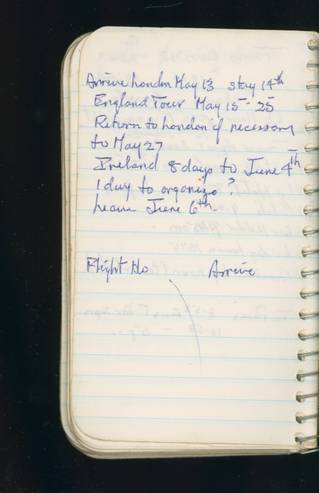 Arrive London May 13 stay 14th
England Tour May 15 - 25
Return to London if necessary
to May 27
Ireland 8 days to June 4th
1 day to organize?
Leave June 6th.
Flight No Arrive